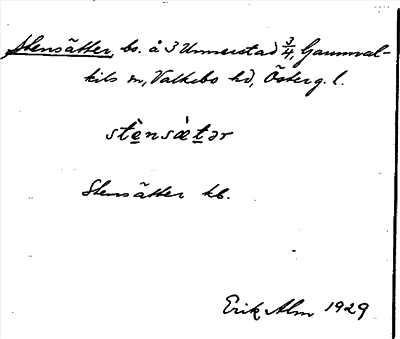 Stensätter, bs. å 3 Unnerstad 3/4, Gammal-
kils sn, Valkebo hd, Österg. l.
stènsæ̀tər
Stensätter kb.
Erik Alm 1929